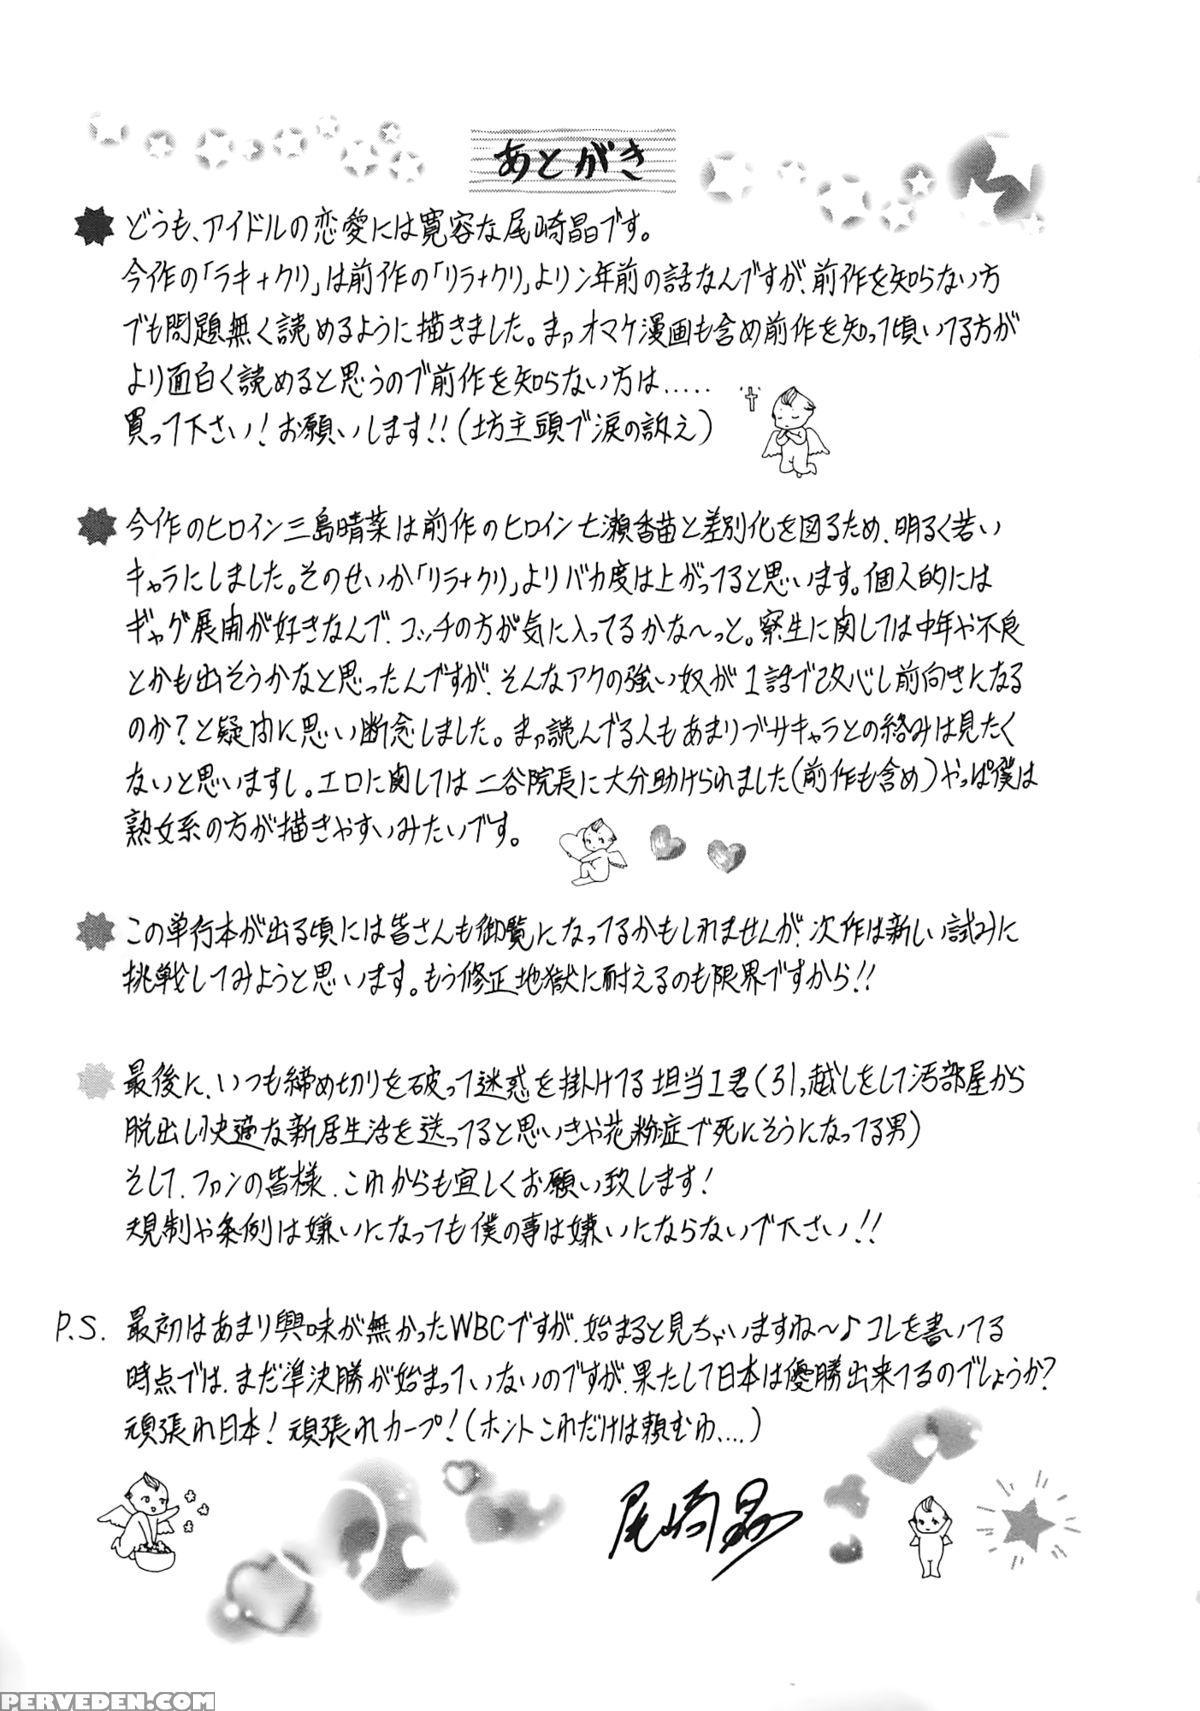 あとがき
どうも、アイドルの恋愛には寛容な尾崎晶です。
今作の「ラキ+クリ」は前作の「リラ+クリ」よりン年前の話なんですが、前作を知らない方
でも問題無く読めるように描きました。まァオマケ漫画も含め前作を知って頂いてる方が
より面白く読めると思うので前作を知らない方は.....
買って下さい!お願いします!!(坊主頭で涙の訴え)
今作のヒロイン三島晴菜は前作のヒロイン七瀬香苗と差別化を図るため、明るく若い
キャラにしました。そのせいか「リラ+クリ」よりバカ度は上がってると思います。個人的には
ギャグ展開が好きなんで、コッチの方が気に入ってるかな〜っと。寮生に関しては中年や不良
とかも出そうかなと思ったんですが、そんなアクの強い奴が1話で改心し前向きになる
のか?と疑問に思い断念しました。まァ読んでる人もあまりブサキャラとの絡みは見たく
ないと思いますし。エロに関しては二谷院長に大分助けられました(前作も含め)やっぱ僕は
熟女系の方が描きやすいみたいです。
この単行本が出る頃には皆さんも御覧になってるかもしれませんが、次作は新しい試みに
挑戦してみようと思います。もう修正地獄に耐えるのも限界ですから!!
最後に、いつも締め切りを破って迷惑を掛けてる担当I君(引っ越しをして汚部屋から
脱出し快適な新居生活を送ってると思いきや花粉症で死にそうになってる男)
そして、ファンの皆様、これからも宜しくお願い致します!
規制や条例は嫌いになっても僕の事は嫌いにならないで下さい!!
P.S. 最初はあまり興味が無かったWBCですが、始まると見ちゃいますね〜♪コレを書いてる
時点では、まだ準決勝が始まっていないのですが、果たして日本は優勝出来てるのでしょうか?
頑張れ日本!頑張れカープ!(ホントこれだけは頼むわ....)
尾崎晶
PERVEDEN.COM